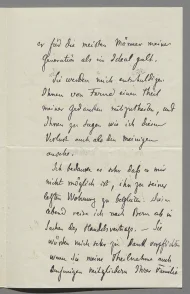 er für die meisten Männer meiner
Generation als ein Ideal galt.
Sie werden mich entschuldigen
Ihnen von Ferne einen Theil
meiner Gedanken mitzutheilen, und
Ihnen zu sagen wie ich diesen
Verlust auch als den meinigen
ansehe.
Ich bedaure es sehr daß es mir
nicht möglich ist, ihn zu seiner
letzten Wohnung zu begleiten.
abend reise ich nach Bern ab in
Sachen des Handelsvertrags. — Sie
würden mich sehr zu Dank verpflichten
wenn Sie meine Theilnahme auch
denjenigen Mitgliedern Ihrer Familie